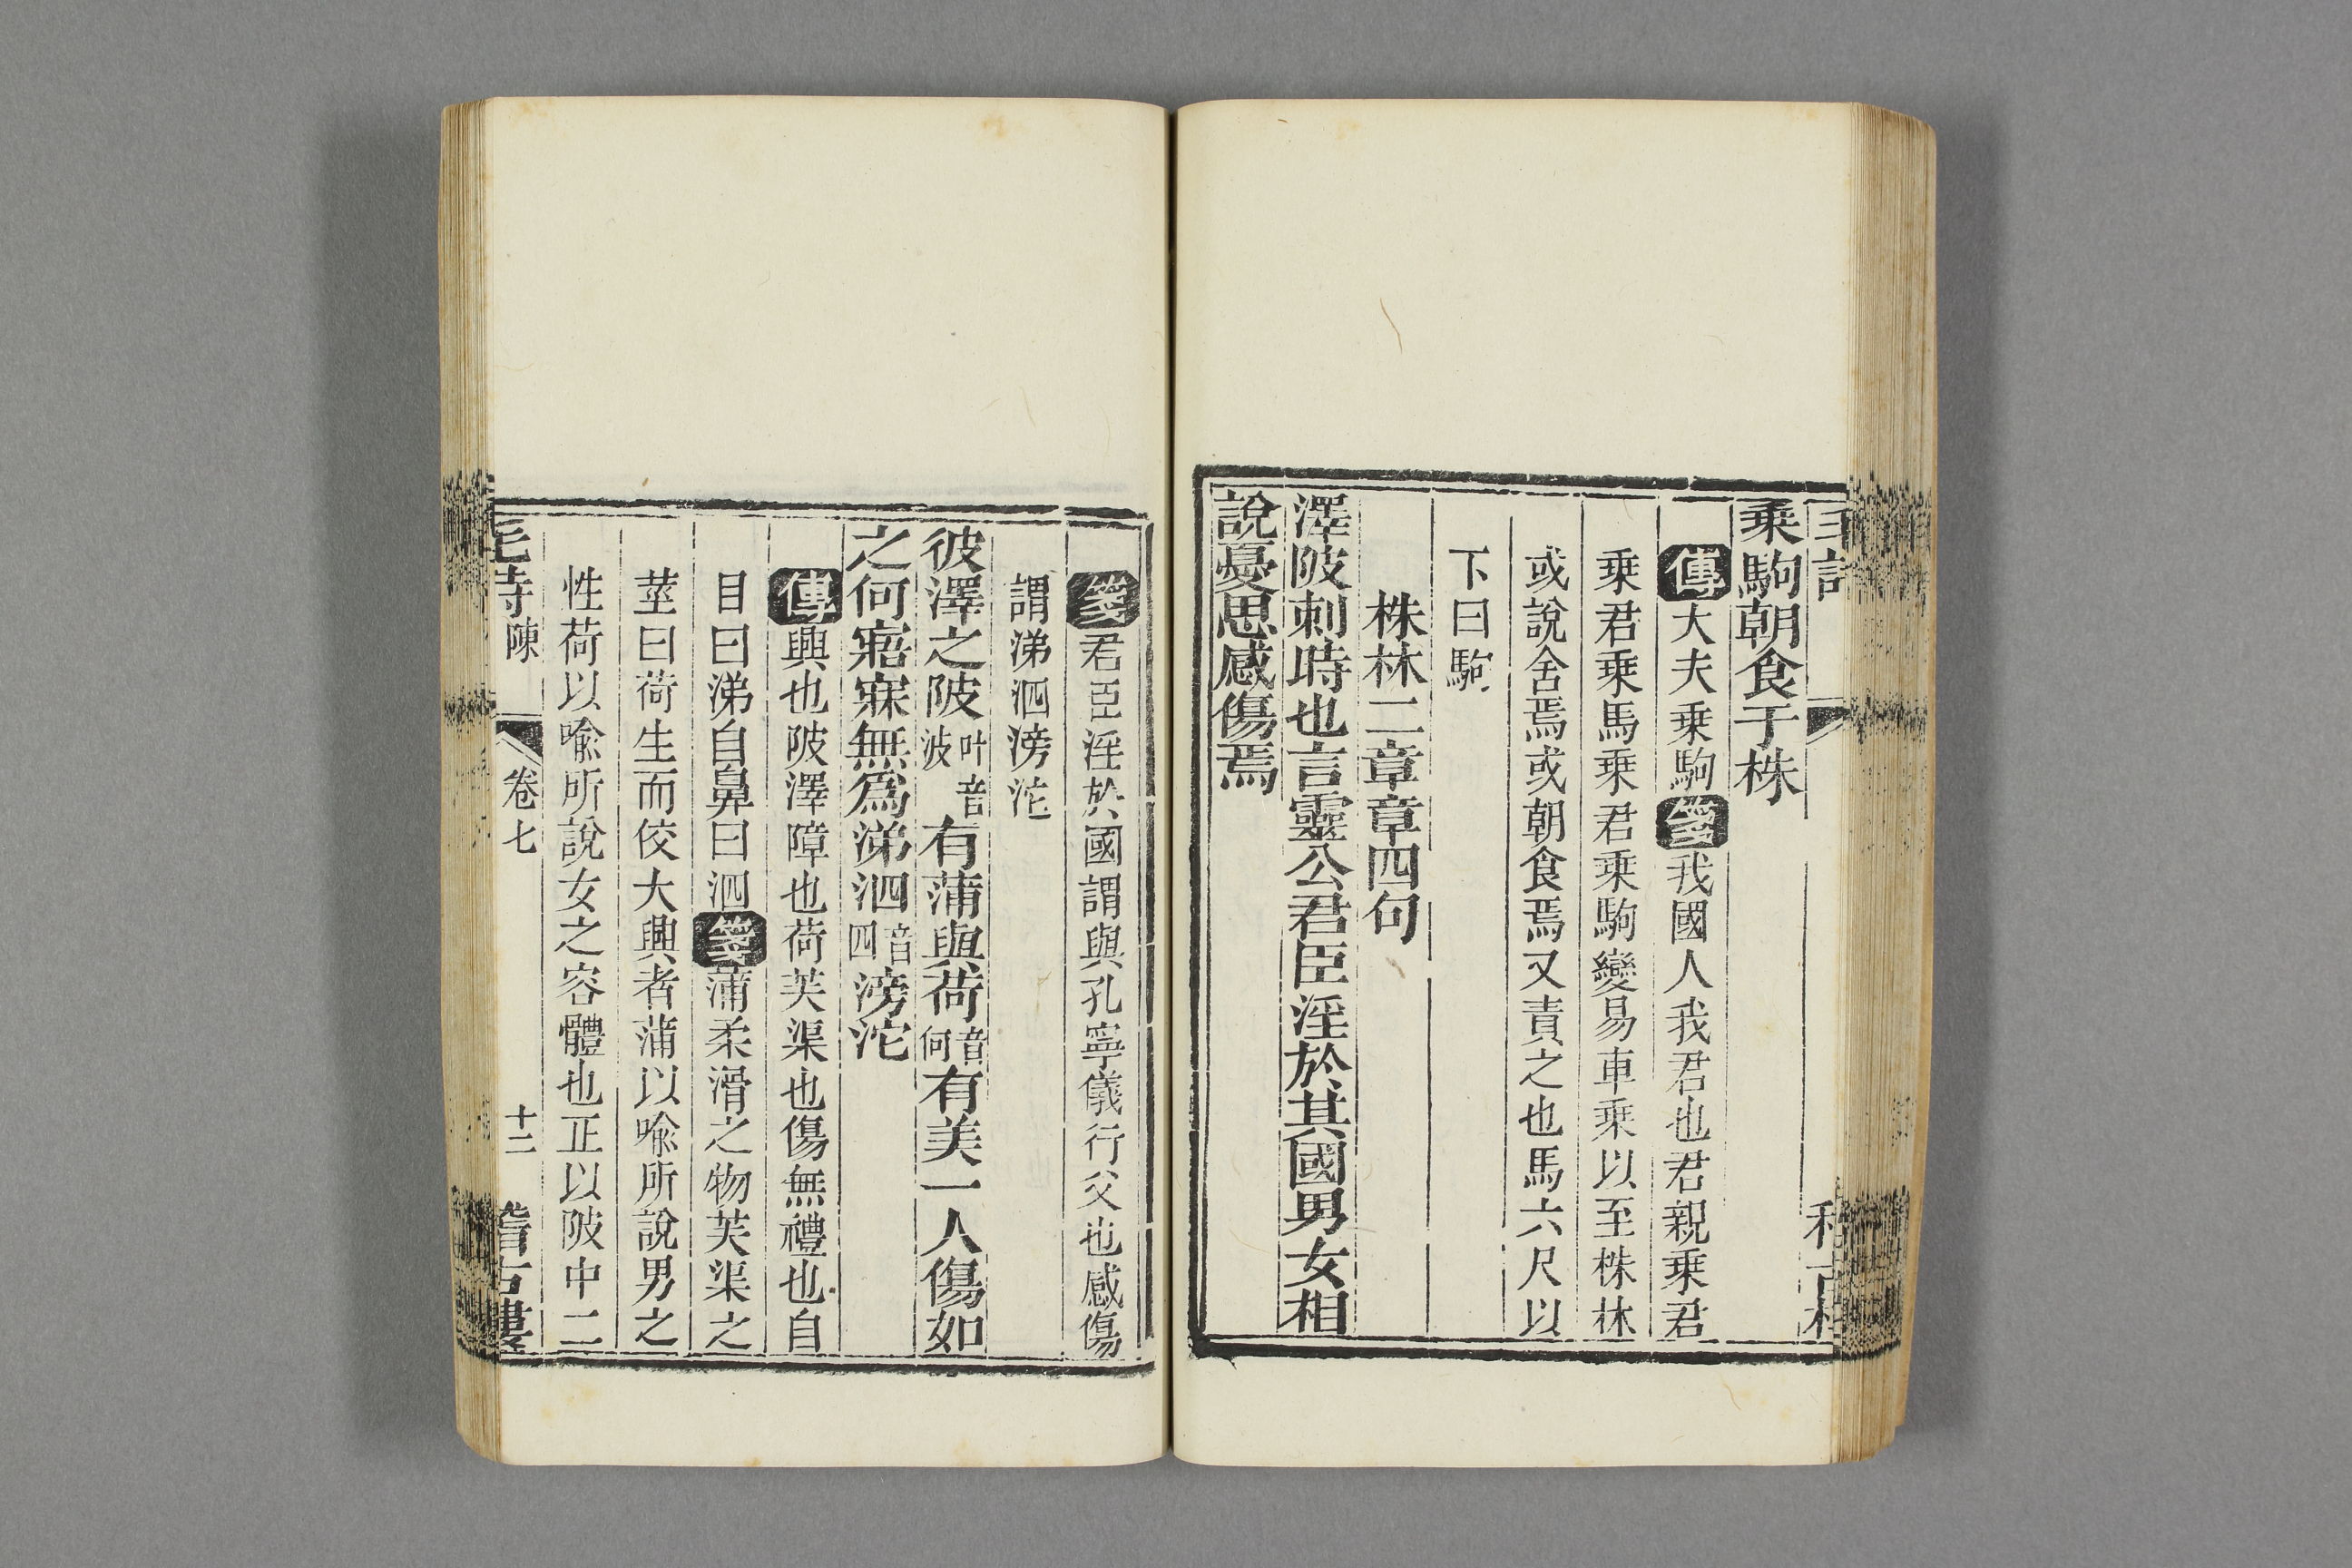 乘駒朝食于株
傳大夫乘駒箋我國人我君也君親乘君
乘君乘馬乘君乘駒變易車乘以至株林
或說舍焉或朝食焉又責之也馬六尺以
下曰駒
株林二章章四句
澤陂刺時也言靈公君臣淫於其國男女相
說憂思感傷焉
箋君臣淫於國謂與孔寧儀行父也感傷
謂涕泗滂沱
彼澤之陂叶音波有蒲與荷音何有美一人傷如
之何寤寐無爲涕泗音四滂沱
傳興也陂澤障也荷芙渠也傷無禮也自
目曰涕自鼻曰泗箋蒲柔滑之物芙渠之
莖曰荷生而佼大興者蒲以喩所說男之
性荷以喩所說女之容體也正以陂中二
毛詩 陳 卷七 十二 稽古樓